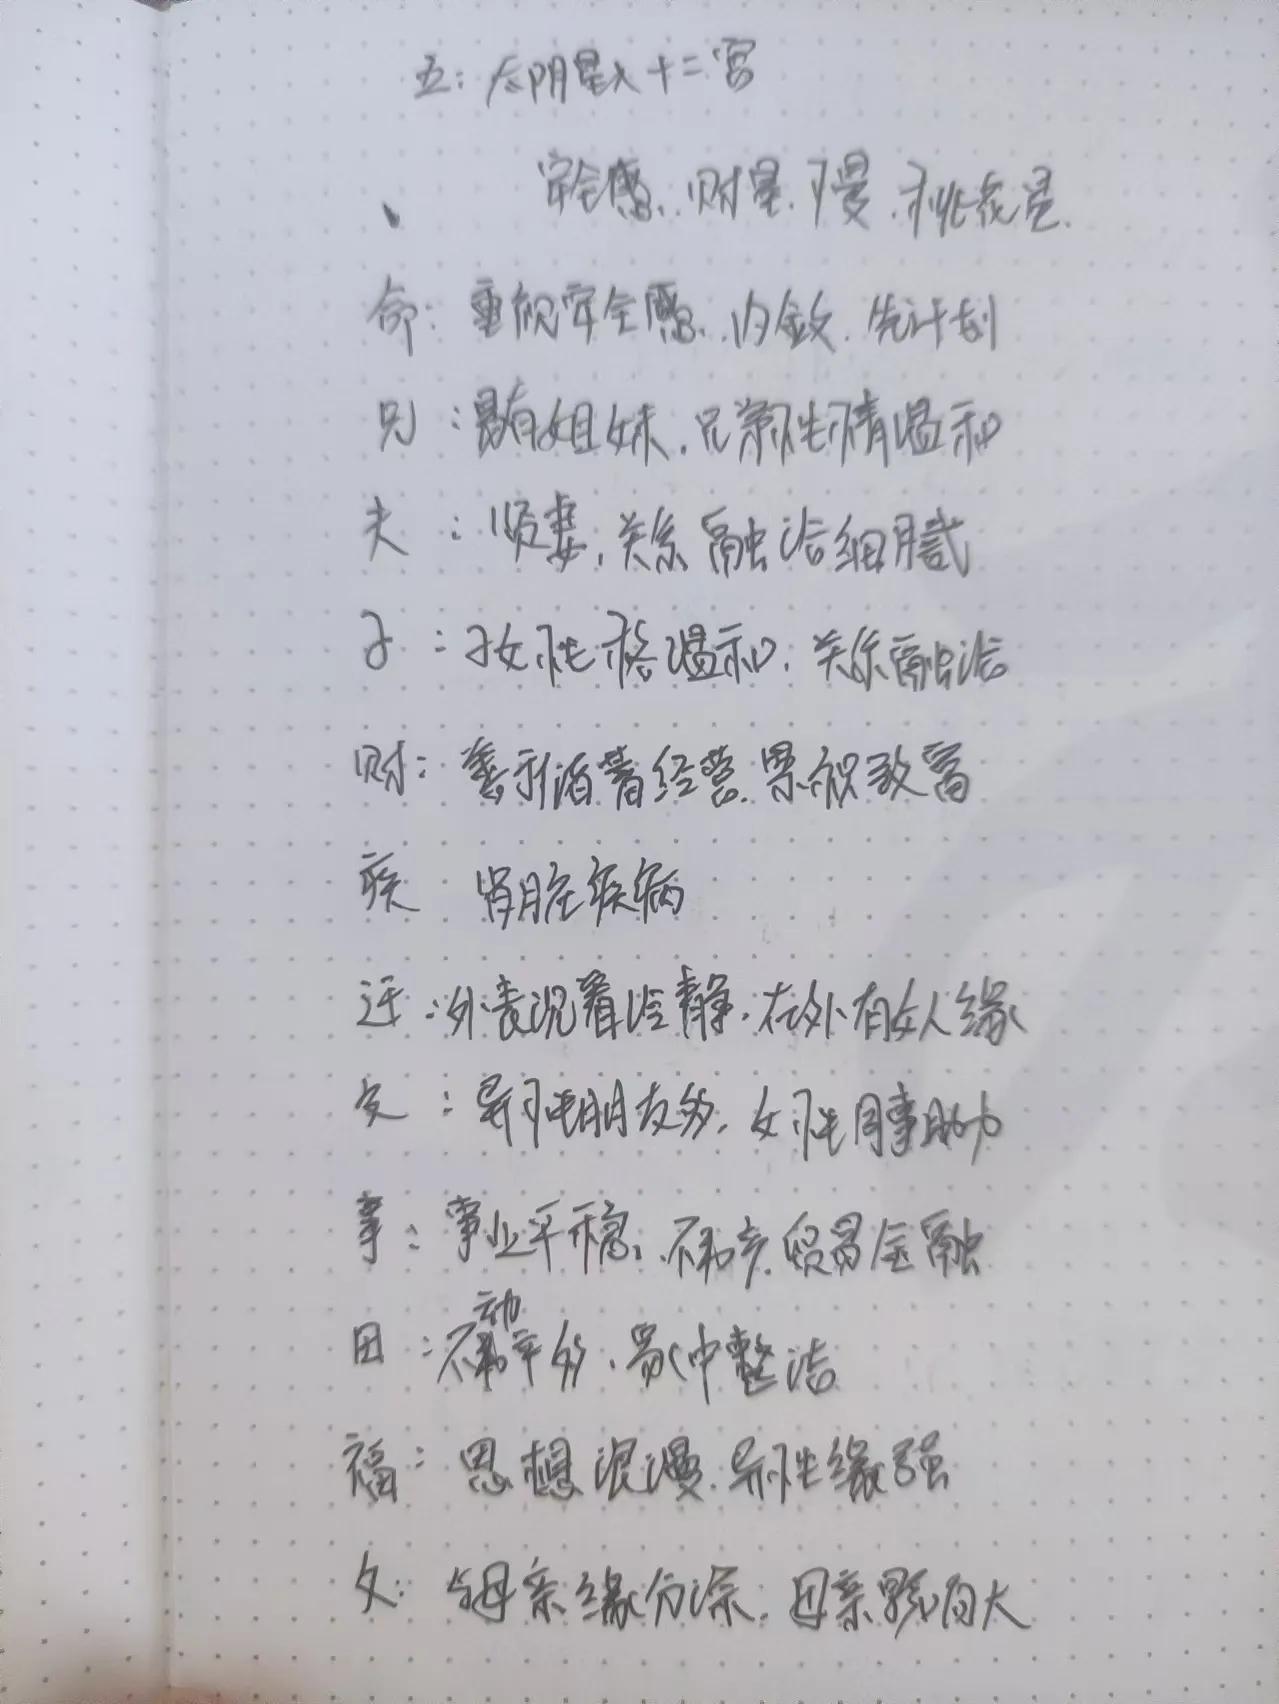 五：太阴星入十二宫
安全感、财星、慢、桃花星.
命：重视安全感、内敛、先计划
兄：易有姐妹、兄弟性情温和
夫：贤妻，关系融洽细腻
子：子女性格温和、关系融洽
财：善于酒着经营、累积致富
疾 肾脏疾病
迁：外表沉着冷静、在外有女人缘
交：异性朋友多，女性同事助力
事：事业平稳、不动产、贸易金融
田：不动产多、家中整洁
福：思想浪漫、异性缘强
父：与母亲缘分深，母亲影响大